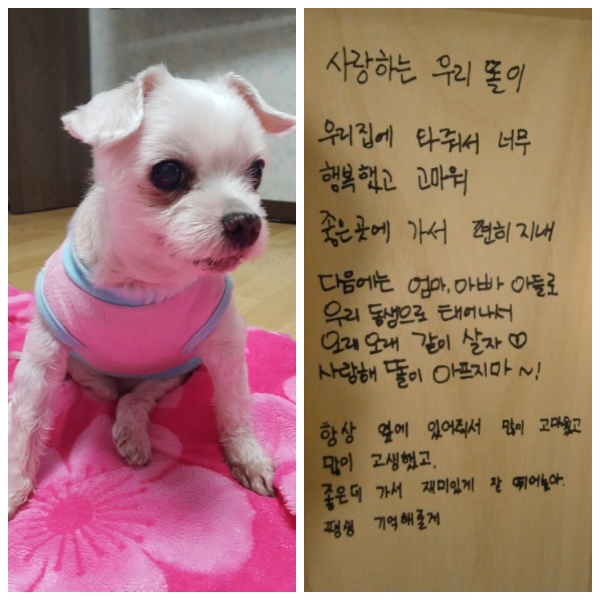 사랑하는 우리 똘이
우리집에 와줘서 너무
행복했고 고마워
좋은곳에 가서 편히지내
다음에는 엄마, 아빠 아들로
우리 동생으로 태어나서
오래오래 같이 살자♡
사랑해 똘이 아프지마~!
항상 옆에 있어줘서 많이 고마웠고
많이 고생했고.
좋은데 가서 재미있게 잘 뛰어놀아.
평생 기억해줄게